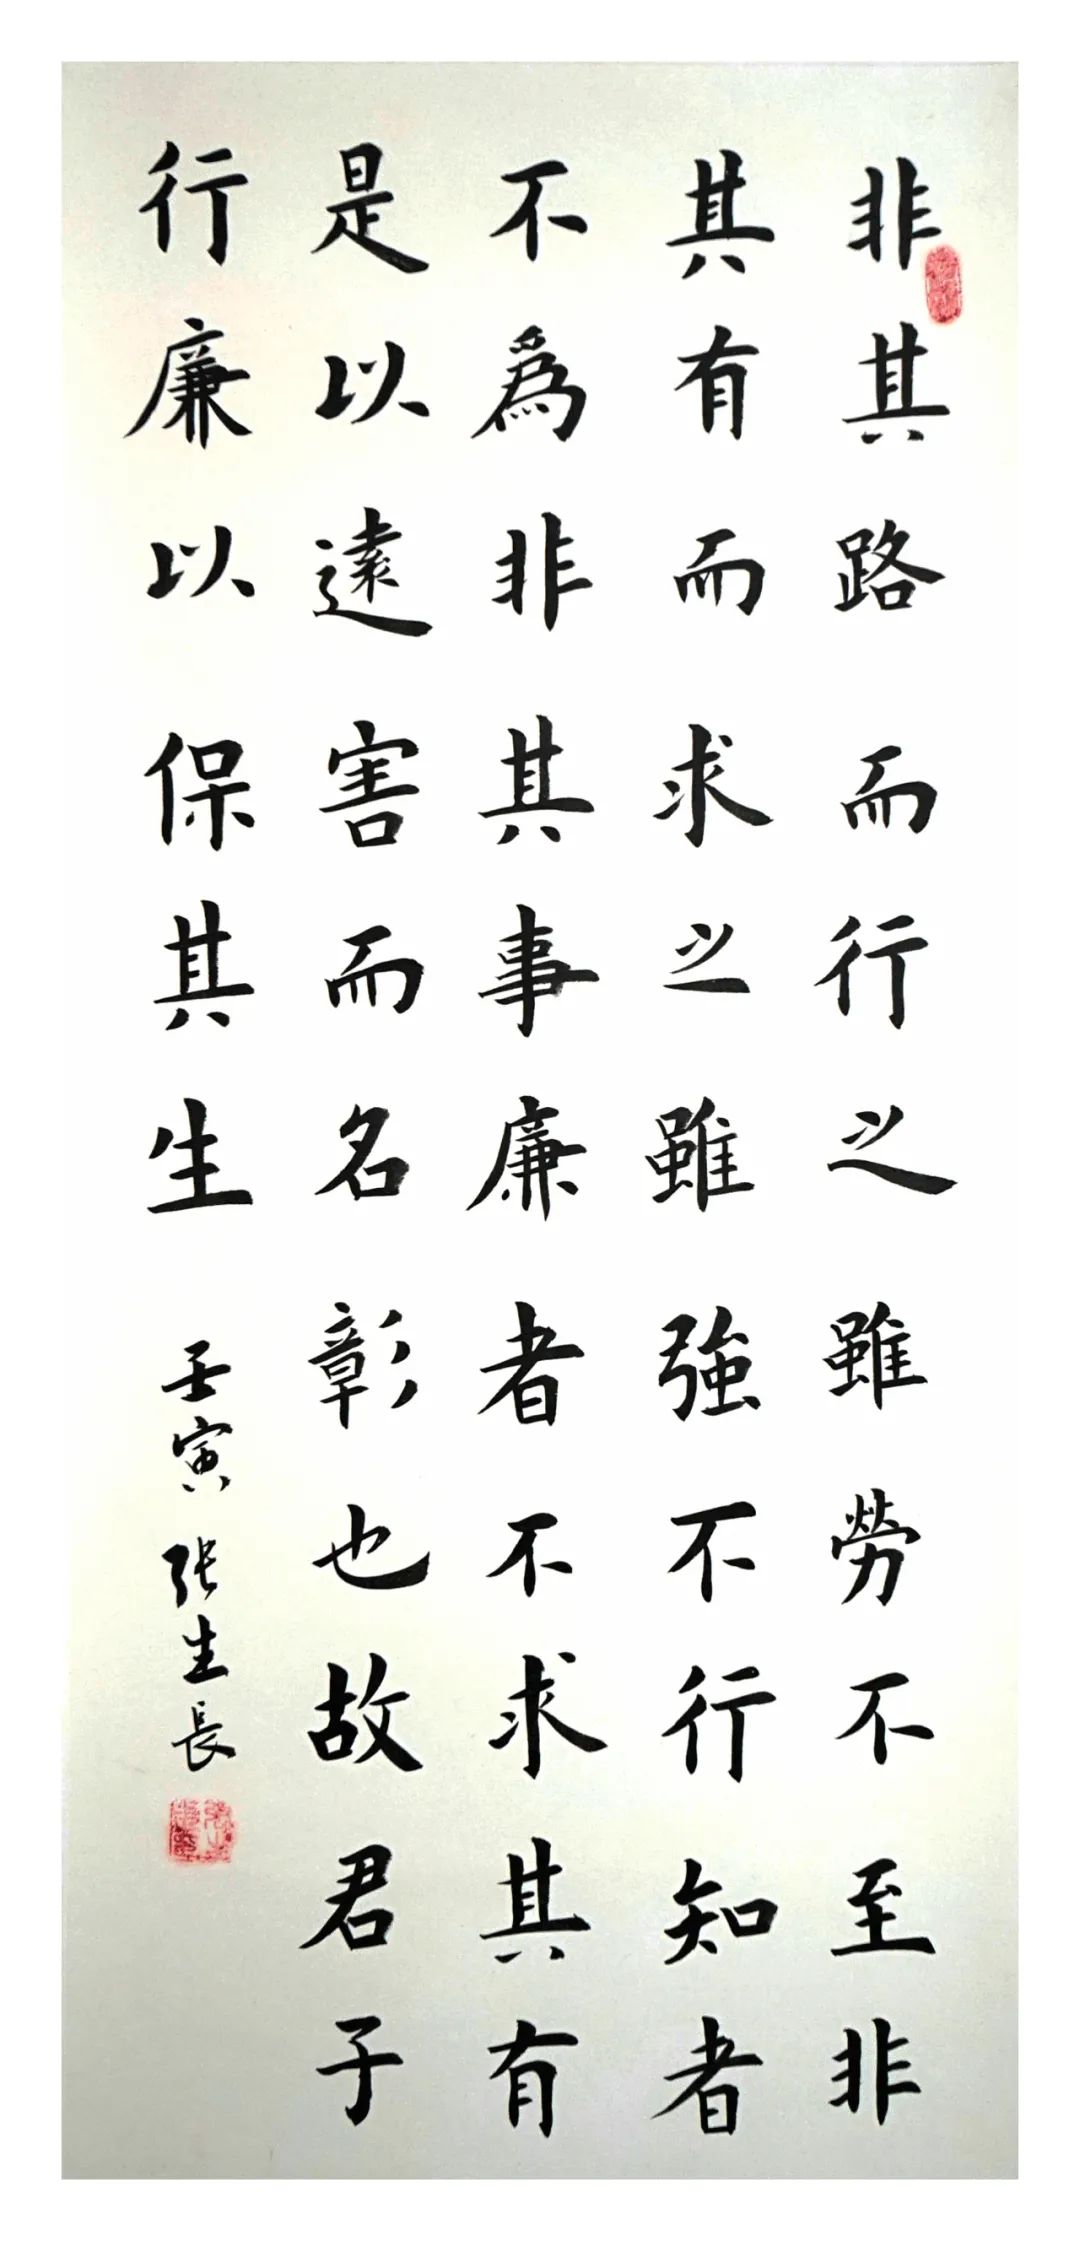 非其路而行之雖勞不至非
其有而求之雖強不行知者
不爲非其事廉者不求其有
是以遠害而名彰也故君子
行廉以保其生
壬寅 张生長